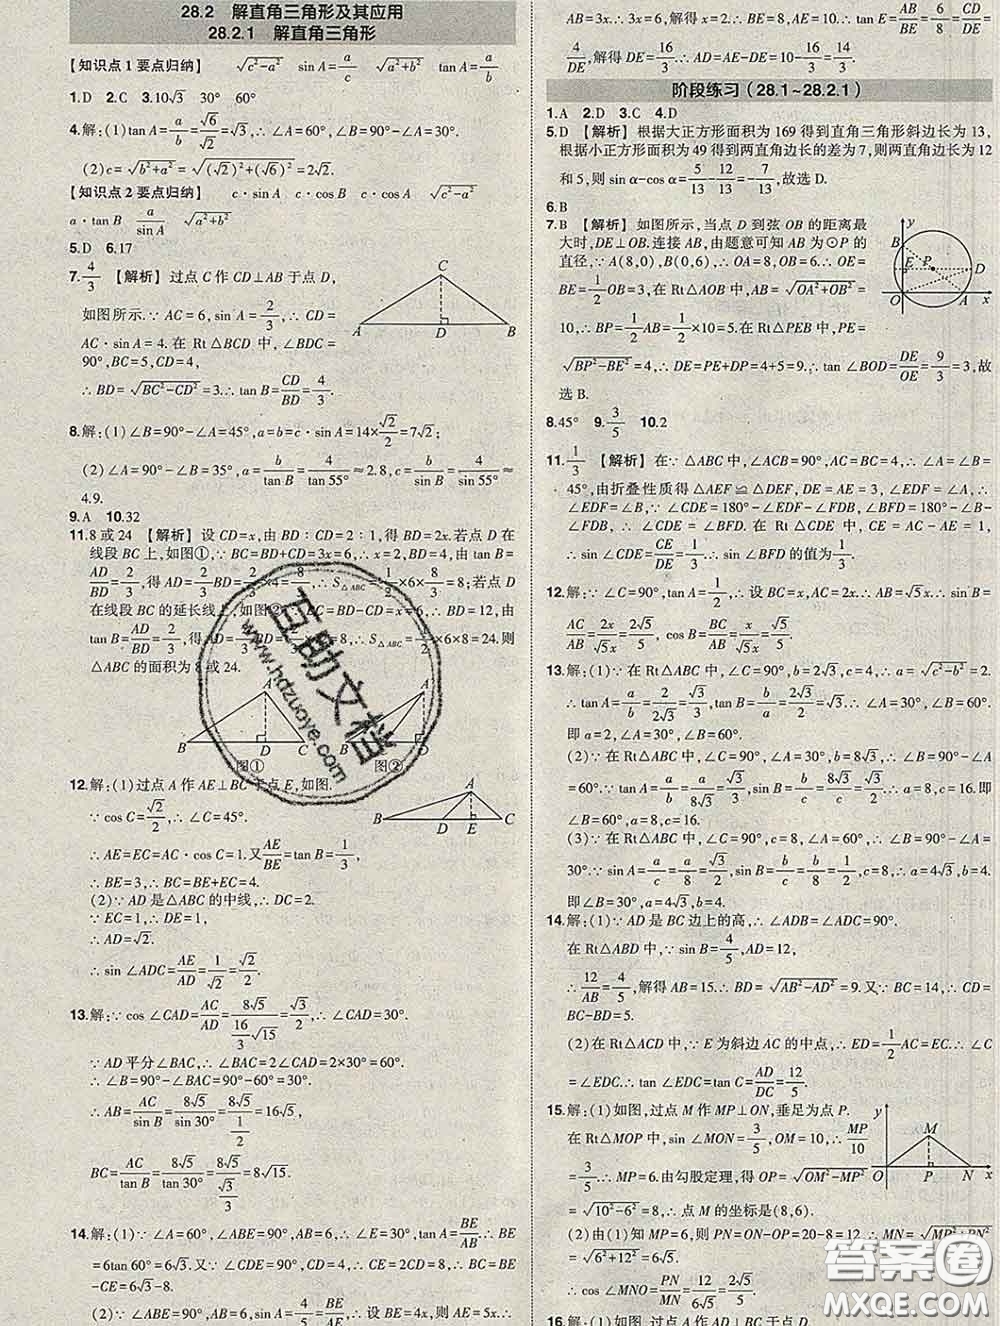 28.2 解直角三角形及其应用
28.2.1 解直角三角形
【知识点1要点归纳】 √(c²-a²) sin A=a/c √(a²+b²) tan A=a/b
1.D 2.C 3.10√3 30° 60°
4.解:(1)tan A=a/b=√6/√2=√3,∴∠A=60°,∠B=30°.
(2)c=√(b²+a²)=√((√2)²+(√6)²)=2√2.
【知识点2要点归纳】 c·sin A c·cos B c·cos A √(c²-a²)
a·tan B a/sin A √(a²+b²)
5.D 6.17
7.4/3 【解析】过点C作CD⊥AB于点D,
如图所示.∵AC=6,sin A=2/3,∴CD=
AC·sin A=4.在Rt△BCD中,∠BDC=
90°,BC=5,CD=4,
∴BD=√(BC²-CD²)=3.∴tan B=CD/BD=4/3.
C
A D B
8.解:(1)∠B=90°-∠A=45°,a=b=c·sin A=14×√2/2=7√2;
(2)∠A=90°-∠B=35°,a=b/tan B=4/tan 55°≈2.8,c=b/sin B=4/sin 55°≈
4.9.
9.A 10.32
11.8或24 【解析】设CD=x,由BD∶CD=2∶1,得BD=2x.若点D在
线段BC上,如图①,∵BC=BD+CD=3x=6,∴x=2,BD=4,由tan B=
AD/BD=2/3,得AD=2/3BD=2/3×4=8/3,∴S△ABC=1/2×6×8/3=8;若点D
在线段BC的延长线上,如图②,∴BC=BD-CD=x=6,∴BD=12,由
tan B=AD/BD=2/3,得AD=2/3BD=8.∴S△ABC=1/2×6×8=24.则
△ABC的面积为8或24.
A A
B D C B C D
图① 图②
12.解:(1)过点A作AE⊥BC于点E,如图.
∵cos C=√2/2,∴∠C=45°.
∴AE=EC=AC·cos C=1.又AE/BE=tan B=1/3,
∴BE=3.∴BC=BE+EC=4.
(2)∵AD是△ABC的中线,∴DC=2.
∵EC=1,∴DE=1;
∴AD=√2.
∴sin∠ADC=AE/AD=1/√2=√2/2.
A
B D E C
13.解:∵cos∠CAD=AC/AD=8√5/(16/3√15)=√3/2,∴∠CAD=30°.
∵AD平分∠BAC,∴∠BAC=2∠CAD=2×30°=60°.
∴∠B=90°-∠BAC=90°-60°=30°.
∴AB=AC/sin B=8√5/sin30°=8√5/(1/2)=16√5,
BC=AC/tan B=8√5/tan30°=8√5/(√3/3)=8√15.
14.解:(1)∵∠A=60°,∠ABE=90°,AB=6,∴∠E=30°,tan A=BE/AB.∴BE=
6tan 60°=6√3.又∵∠CDE=90°,CD=4,∴CE=2CD=8,∴BC=BE-CE=
6√3-8.
(2)∵∠ABE=90°,sin A=4/5=BE/AE,∴设BE=4x,则AE=5x.∴
AB=3x.∴3x=6.∴x=2.∴BE=8,AE=10.∴tan E=AB/BE=6/8=CD/DE=
4/DE,解得DE=16/3.∴AD=AE-DE=10-16/3=14/3.
阶段练习(28.1~28.2.1)
1.A 2.D 3.C 4.D
5.D 【解析】根据大正方形面积为169得到直角三角形斜边长为13,
根据小正方形面积为49得到两直角边长的差为7,则两直角边长为12
和5,则sin α-cos α=5/13-12/13=-7/13,故选D.
6.B
7.B 【解析】如图所示,当点D到弦OB的距离最
大时,DE⊥OB.由题意可知AB为⊙P的
直径,∵A(8,0),B(0,6),∴OA=8,OB=6.∴OE=
BE=1/2OB=3,在Rt△AOB中,AB=√(OA²+OB²)=
10,∴BP=1/2AB=1/2×10=5.在Rt△PEB中,PE=
√(BP²-BE²)=4,∴DE=PE+DP=4+5=9.∴tan∠BOD=DE/OE=9/3=3,故
选B.
y
B
E P D
O A x
8.45° 9.3/5 10.2
11.1/3 【解析】在∵△ABC中,∠ACB=90°,AC=BC=4,∴∠A=∠B=
45°,由折叠性质得△AEF≌△DEF,DE=AE=3,∠EDF=∠A,∴
∠EDF=∠B,∴∠CDE=180°-∠EDF-∠BDF,∠BFD=180°-∠B-
∠FDB,∴∠CDE=∠BFD.在Rt△CDE中,CE=AC-AE=1,
∴sin∠CDE=CE/DE=1/3,∴sin∠BFD的值为1/3.
12.解:∵∠C=90°,tan A=1/2,∴设BC=x,AC=2x,∴AB=√5x.∴sin B=
AC/AB=2x/√5x=2√5/5,cos B=BC/AB=x/√5x=√5/5.
13.解:(1)∵在Rt△ABC中,∠C=90°,b=2√3,c=4,∴a=√(c²-b²)=2.
∴tan A=a/b=2/2√3=√3/3,∴∠A=30°.∴∠B=90°-∠A=90°-30°=60°.
即a=2,∠A=30°,∠B=60°.
(2)∵在Rt△ABC中,∠C=90°,∠A=30°,b=8√3,∴∠B=90°-∠A=
60°.∵tan A=a/b=a/8√3=√3/3,sin A=a/c=8/c=1/2.∴a=8,c=16.即
∠B=60°,a=8,c=16.
(3)∵在Rt△ABC中,∠C=90°,c=8,∠A=60°,∴∠B=90°-∠A=
30°.∵sin A=a/c=a/8=√3/2,sin B=b/c=b/8=1/2,∴a=4√3,b=4.
即∠B=30°,a=4√3,b=4.
14.解:(1)∵AD是BC边上的高,∴∠ADB=∠ADC=90°.
在Rt△ABD中,∵sin B=4/5,AD=12,
∴12/AB=4/5,解得AB=15.∴BD=√(AB²-AD²)=9.又∵BC=14,∴CD=
BC-BD=5.
(2)在Rt△ACD中,∵E为斜边AC的中点,∴ED=1/2AC=EC.∴∠C=
∠EDC.∴tan∠EDC=tan C=AD/DC=12/5.
15.解:(1)如图,过点M作MP⊥ON,垂足为点P.
在Rt△MOP中,sin∠MON=3/5,OM=10,∴MP/10=
3/5.∴MP=6.由勾股定理,得OP=√(OM²-MP²)
=√(10²-6²)=8.∴点M的坐标是(8,6).
(2)由(1)知MP=6,则PN=ON-OP=20-8=12,∴MN=√(MP²+PN²)
=√(6²+12²)=6√5.
∴cos∠MNO=PN/MN=12/6√5=2√5/5.
y
M
O P N x
16.解:(1)如图,作AD⊥BC于点D,
互助文档
www.hdzuoye.com
答案圈
MXQE.COM